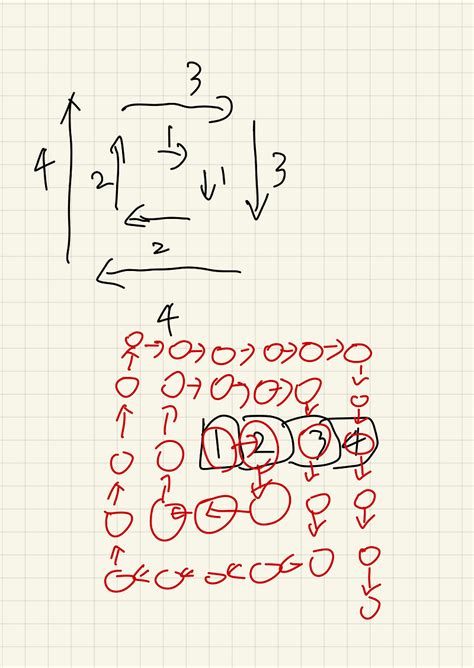 3
1
4 2 1 3
2
4
1 2 3 4